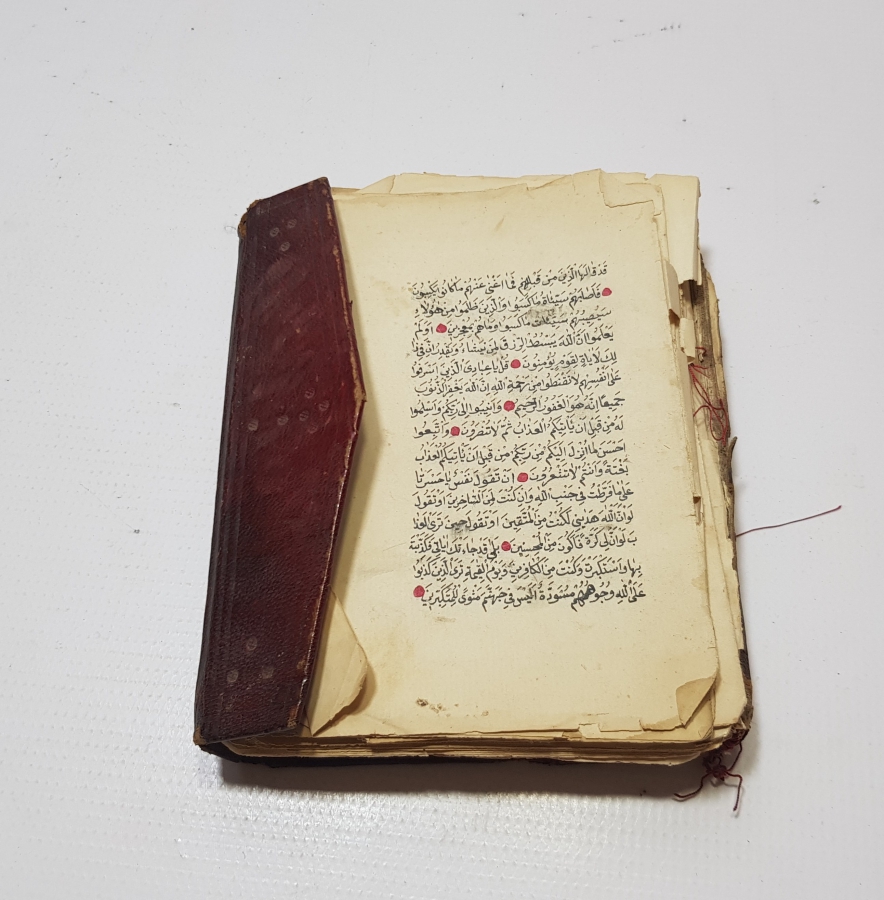 قَدْ قَالَهَا الَّذِينَ مِنْ قَبْلِهِمْ فَمَا اَغْنٰى عَنْهُمْ مَا كَانُوا يَكْسِبُونَ
فَاَصَابَهُمْ سَيِّئَاتُ مَا كَسَبُوا وَالَّذِينَ ظَلَمُوا مِنْ هٰؤُلَاءِ
سَيُصِيبُهُمْ سَيِّئَاتُ مَا كَسَبُوا وَمَا هُمْ بِمُعْجِزِينَ اَوَلَمْ
يَعْلَمُوا اَنَّ اللّٰهَ يَبْسُطُ الرِّزْقَ لِمَنْ يَشَاءُ وَيَقْدِرُ اِنَّ فِي ذَا
لِكَ لَاٰيَاتٍ لِقَوْمٍ يُؤْمِنُونَ قُلْ يَا عِبَادِيَ الَّذِينَ اَسْرَفُوا
عَلٰى اَنْفُسِهِمْ لَا تَقْنَطُوا مِنْ رَحْمَةِ اللّٰهِ اِنَّ اللّٰهَ يَغْفِرُ الذُّنُوبَ
جَمِيعًا اِنَّهُ هُوَ الْغَفُورُ الرَّحِيمُ وَاَنِيبُوا اِلٰى رَبِّكُمْ وَاَسْلِمُوا
لَهُ مِنْ قَبْلِ اَنْ يَأْتِيَكُمُ الْعَذَابُ ثُمَّ لَا تُنْصَرُونَ وَاتَّبِعُوا
اَحْسَنَ مَا اُنْزِلَ اِلَيْكُمْ مِنْ رَبِّكُمْ مِنْ قَبْلِ اَنْ يَأْتِيَكُمُ الْعَذَابُ
بَغْتَةً وَاَنْتُمْ لَا تَشْعُرُونَ اَنْ تَقُولَ نَفْسٌ يَا حَسْرَتَا
عَلٰى مَا فَرَّطْتُ فِي جَنْبِ اللّٰهِ وَاِنْ كُنْتُ لَمِنَ السَّاخِرِينَ اَوْ تَقُولَ
لَوْ اَنَّ اللّٰهَ هَدٰينِي لَكُنْتُ مِنَ الْمُتَّقِينَ اَوْ تَقُولَ حِينَ تَرَى الْعَذَا
بَ لَوْ اَنَّ لِي كَرَّةً فَاَكُونَ مِنَ الْمُحْسِنِينَ بَلٰى قَدْ جَاءَتْكَ اٰيَاتِي فَكَذَّبْتَ
بِهَا وَاسْتَكْبَرْتَ وَكُنْتَ مِنَ الْكَافِرِينَ وَيَوْمَ الْقِيٰمَةِ تَرَى الَّذِينَ كَذَبُوا
عَلَى اللّٰهِ وُجُوهُهُمْ مُسْوَدَّةٌ اَلَيْسَ فِي جَهَنَّمَ مَثْوًى لِلْمُتَكَبِّرِينَ